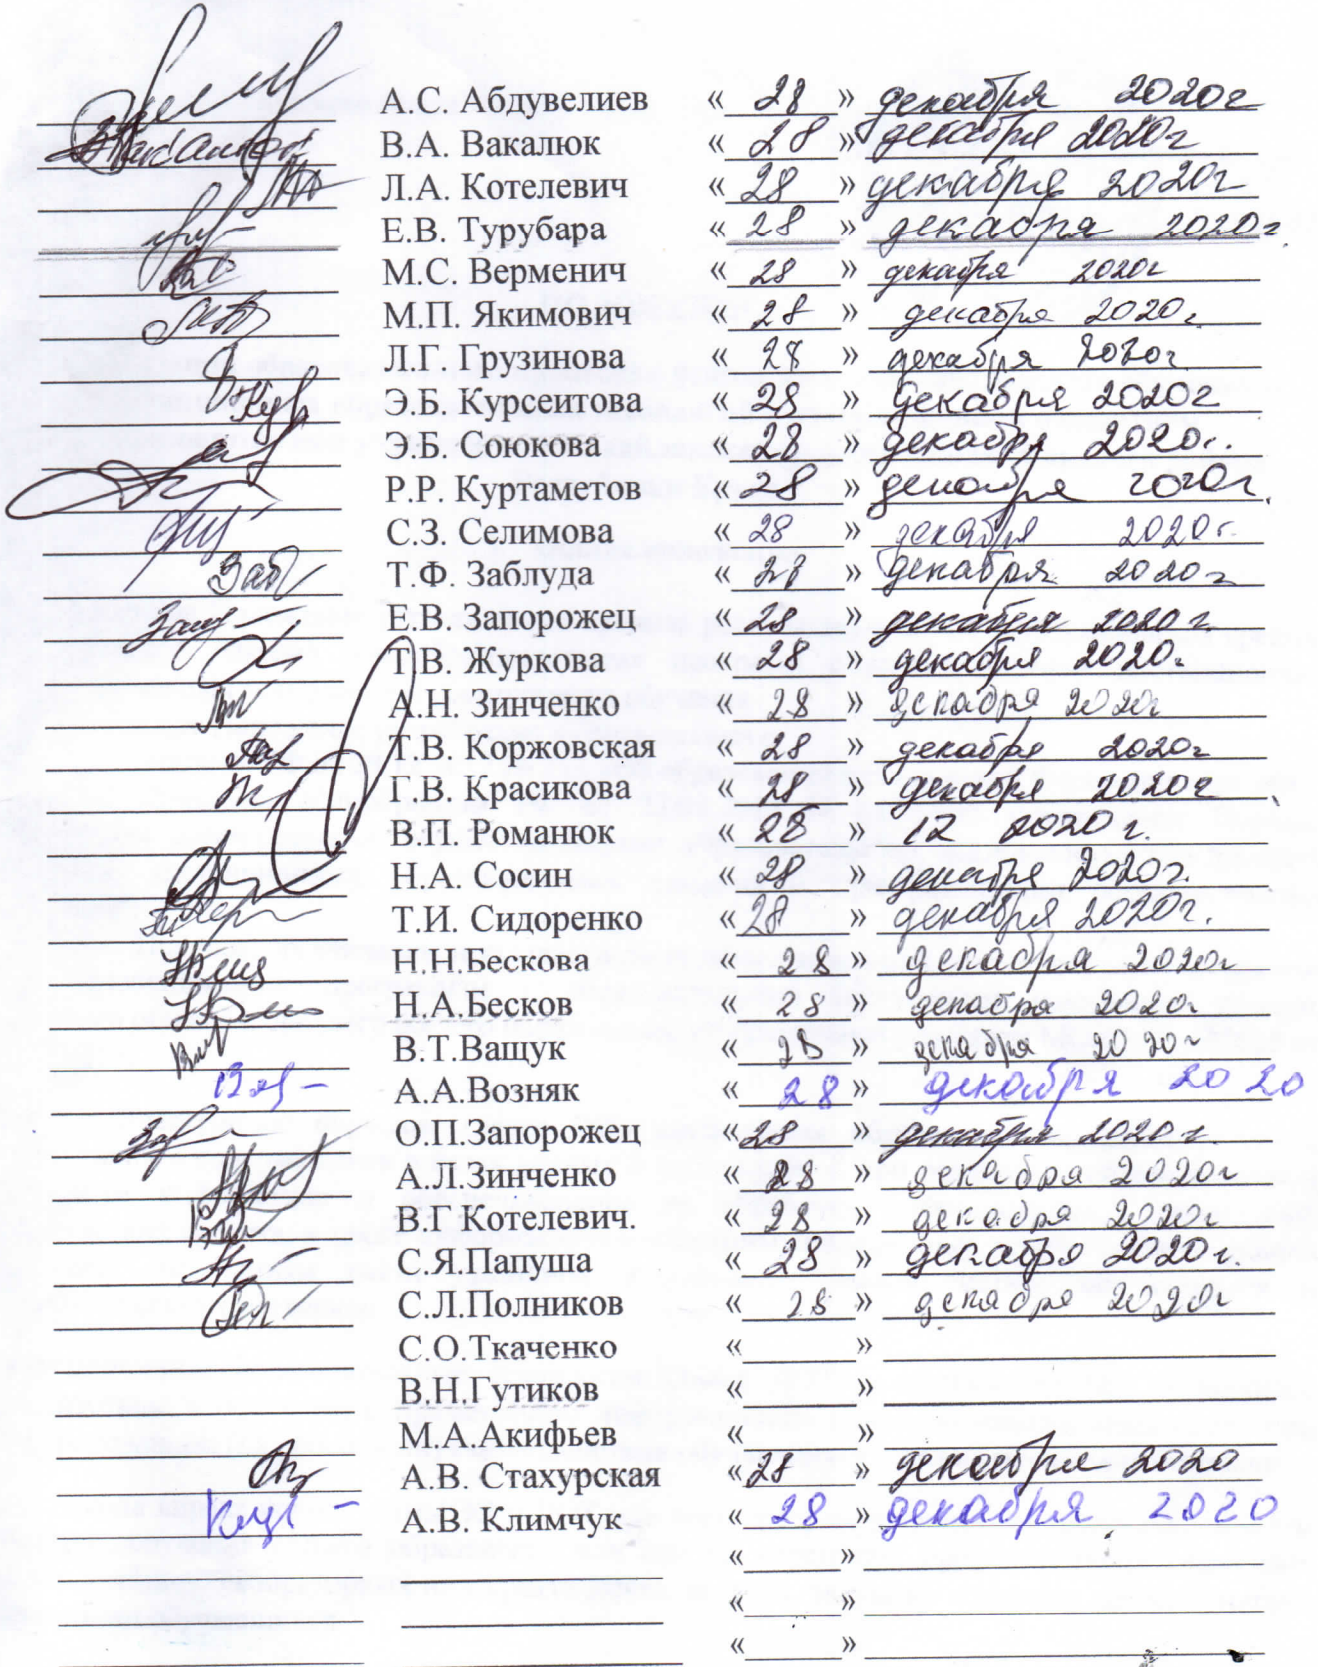 А.С. Абдувелиев « 28 » декабря 2020г
В.А. Вакалюк « 28 » декабря 2020г
Л.А. Котелевич « 28 » декабря 2020г
Е.В. Турубара « 28 » декабря 2020г
М.С. Верменич « 28 » декабря 2020г
М.П. Якимович « 28 » декабря 2020г
Л.Г. Грузинова « 28 » декабря 2020г
Э.Б. Курсеитова « 28 » декабря 2020г
Э.Б. Союкова « 28 » декабря 2020г.
Р.Р. Куртаметов « 28 » декабря 2020г.
С.З. Селимова « 28 » декабря 2020г.
Заб Т.Ф. Заблуда « 28 » декабря 2020г
Е.В. Запорожец « 28 » декабря 2020г.
Т.В. Журкова « 28 » декабря 2020г
А.Н. Зинченко « 28 » декабря 2020г
Т.В. Коржовская « 28 » декабря 2020г
Г.В. Красикова « 28 » декабря 2020г
В.П. Романюк « 28 » 12 2020г.
Н.А. Сосин « 28 » декабря 2020г.
Т.И. Сидоренко « 28 » декабря 2020г.
Н.Н.Бескова « 28 » декабря 2020г
Н.А.Бесков « 28 » декабря 2020г
В.Т.Ващук « 28 » декабря 2020г
А.А.Возняк « 28 » декабря 2020
О.П.Запорожец « 28 » декабря 2020г.
А.Л.Зинченко « 28 » декабря 2020г
В.Т Котелевич. « 28 » декабря 2020г
С.Я.Папуша « 28 » декабря 2020г.
С.Л.Полников « 28 » декабря 2020г
С.О.Ткаченко « »
В.Н.Гутиков « »
М.А.Акифьев « »
А.В. Стахурская « 28 » декабря 2020
А.В. Климчук « 28 » декабря 2020
« »
« »
« »